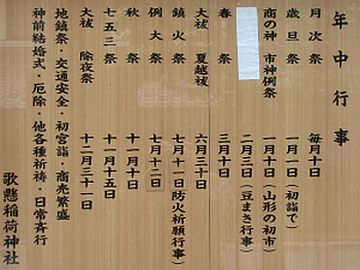 年中行事
月次祭 毎月十日
歳旦祭 一月一日(初詣で)
商の神 市神例祭 一月十日(山形の初市)
二月三日(豆まき行事)
春祭 三月十日
大祓 夏越祓 六月三十日
鎮火祭 七月十一日防火祈願行事)
例大祭 七月十二日
秋祭 十一月十日
七五三祭 十一月十五日
大祓 除夜祭 十二月三十一日
地鎮祭・交通安全・初宮詣・商売繁盛
神前結婚式・厄除・他各種祈祷・日常斉行
歌懸稲荷神社